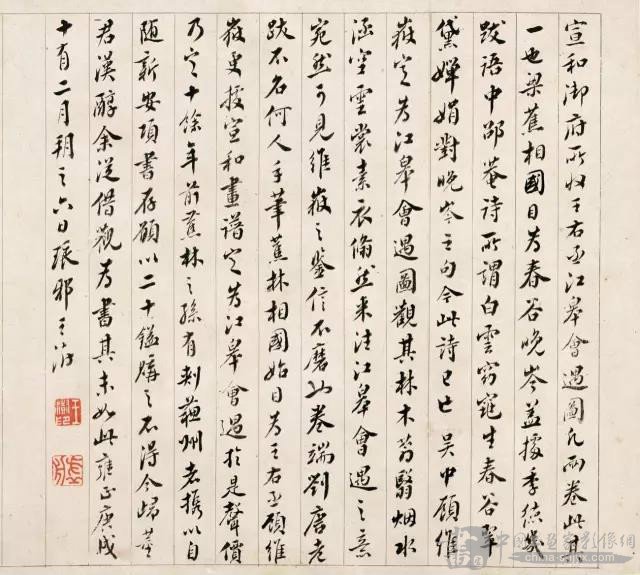 宣和御府所收王右丞江皋會遇圖凡兩卷此其
一也梁蕉相國目為春谷晚岑蓋據季德幾
跋語中邵菴詩所謂白雲窈窕生春谷翠
黛嬋娟對晚岑之句今此詩已亡吳中顧維
嶽定為江皋會遇圖觀其林木蓊翳烟水
涵空雲裳素衣翛然來往江皋會遇之意
宛然可見維嶽之鑒信不磨也卷端劉唐老
跋不名何人手筆蕉林相國始目為王右丞顧維
嶽更援宣和畫譜定為江皋會遇於是聲價
乃定十餘年前蕉林之孫有刺蘇州者攜以自
隨新安項書存願以二十鎰購之不得今歸董
君漢醇余從借觀為書其末如此雍正庚戌
十有二月朔之六日琅邪王澍
王澍印